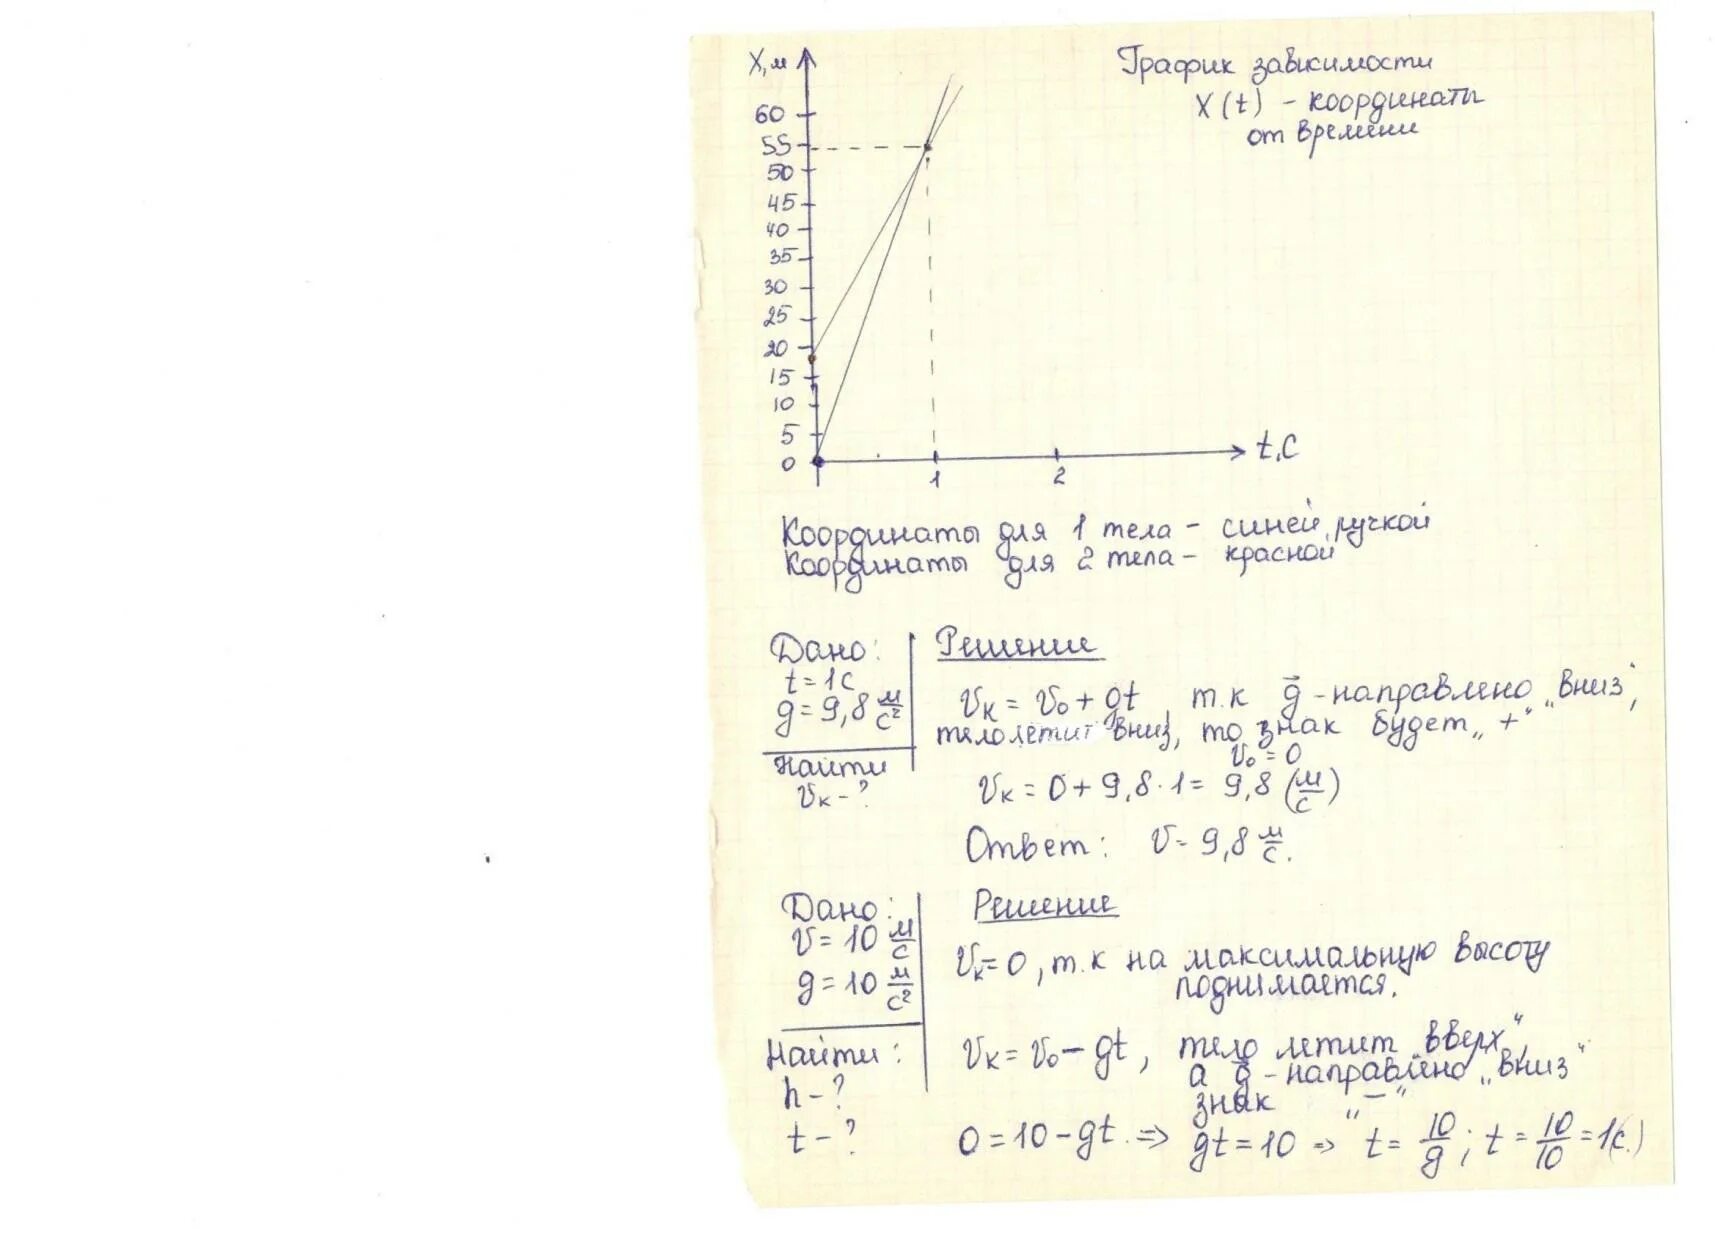 X,м
График зависимости
X(t) - координаты
от времени
60
55
50
45
40
35
30
25
20
15
10
5
0
1
2
t,с
Координаты для 1 тела - синей ручкой
Координаты для 2 тела - красной
Дано:
t = 1с
g = 9,8 м/с²
Найти
Vк - ?
Решение
Vк = V₀ + gt, т.к g⃗ - направлено „вниз",
тело летит вниз, то знак будет „+"
V₀ = 0
Vк = 0 + 9,8 · 1 = 9,8 (м/с)
Ответ: V = 9,8 м/с.
Дано:
V = 10 м/с
g = 10 м/с²
Найти:
h - ?
t - ?
Решение
Vк = 0, т.к на максимальную высоту
поднимается.
Vк = V₀ - gt, тело летит „вверх",
а g⃗ - направлено „вниз"
знак „-"
0 = 10 - gt. => gt = 10 => t = 10/g; t = 10/10 = 1(с.)